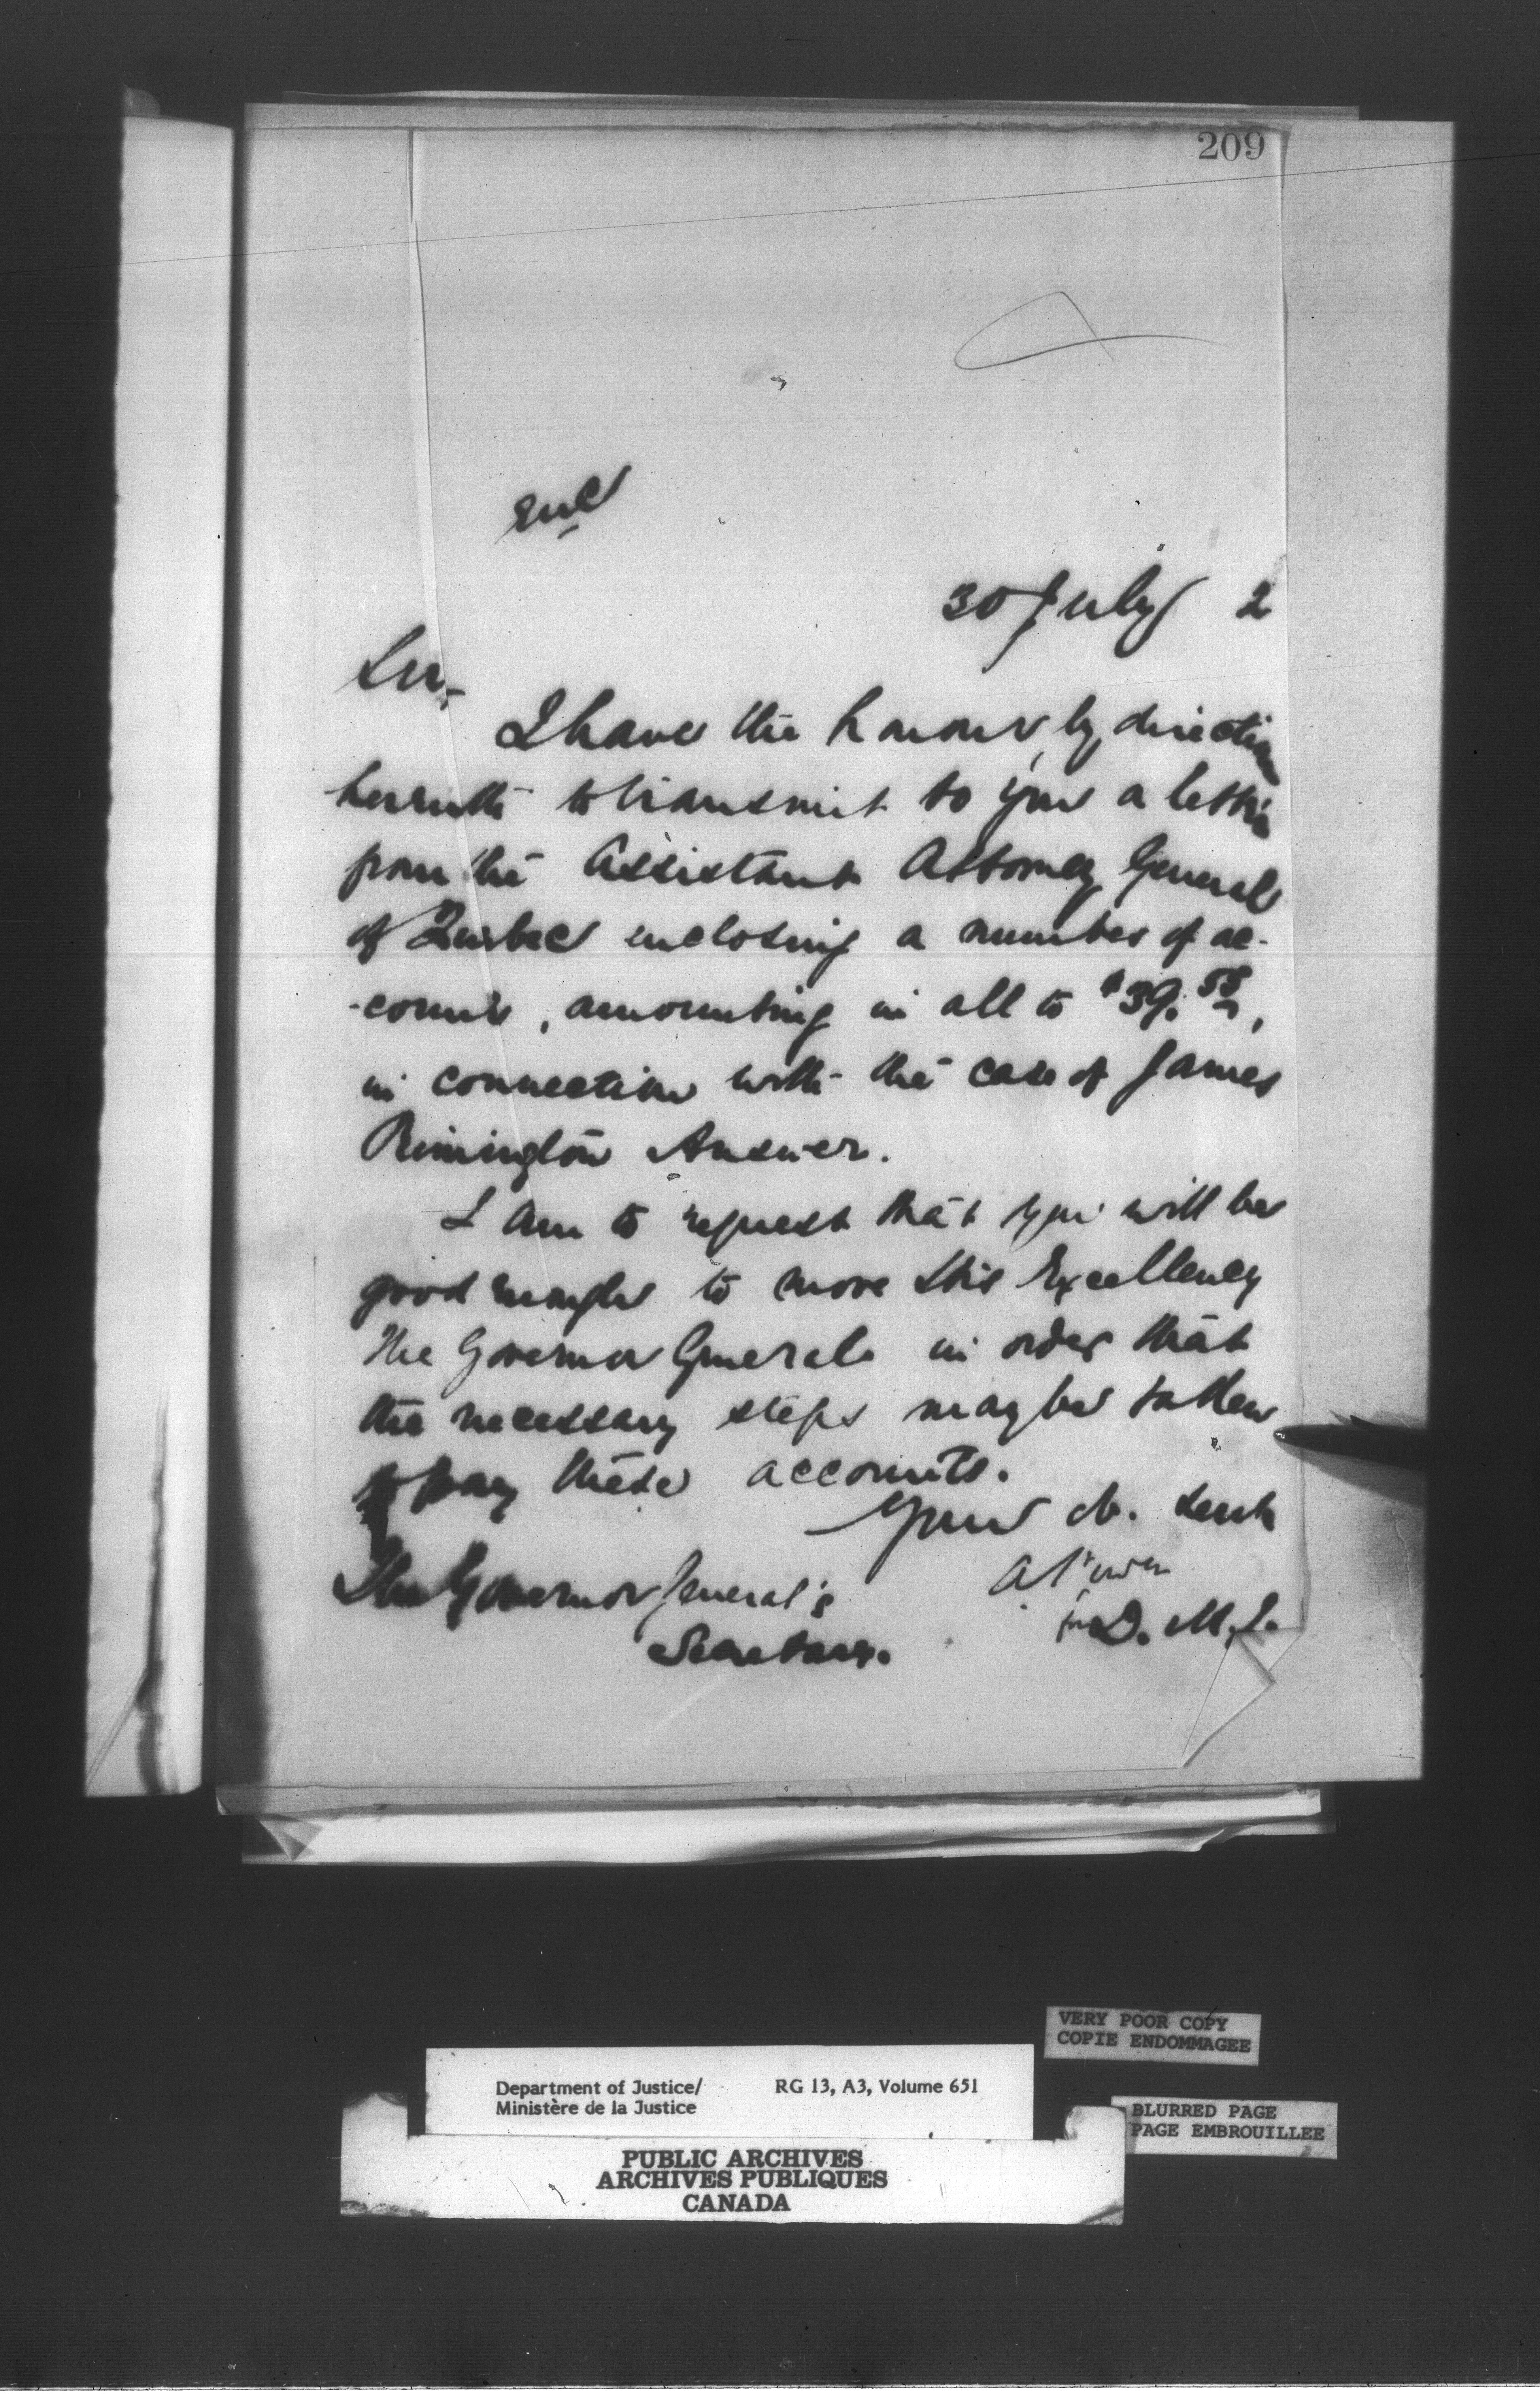 209
Enc
30 July 2
Sir,
I have the honour, by direction
herewith to transmit to you a letter
from the Assistant Attorney General
of Quebec enclosing a number of ac-
-counts, amounting in all to $39.55,
in connection with the case of James
Rimington
I am to request that you will be
good enough to move His Excellency
the Governor General in order that
the necessary steps may be taken
to pay these accounts.
Your ob. servt
A Power
for D. M. J.
The Governor General's
Secretary.
VERY POOR COPY
COPIE ENDOMMAGEE
Department of Justice/ RG 13, A3, Volume 651
Ministère de la Justice
BLURRED PAGE
PAGE EMBROUILLEE
PUBLIC ARCHIVES
ARCHIVES PUBLIQUES
CANADA